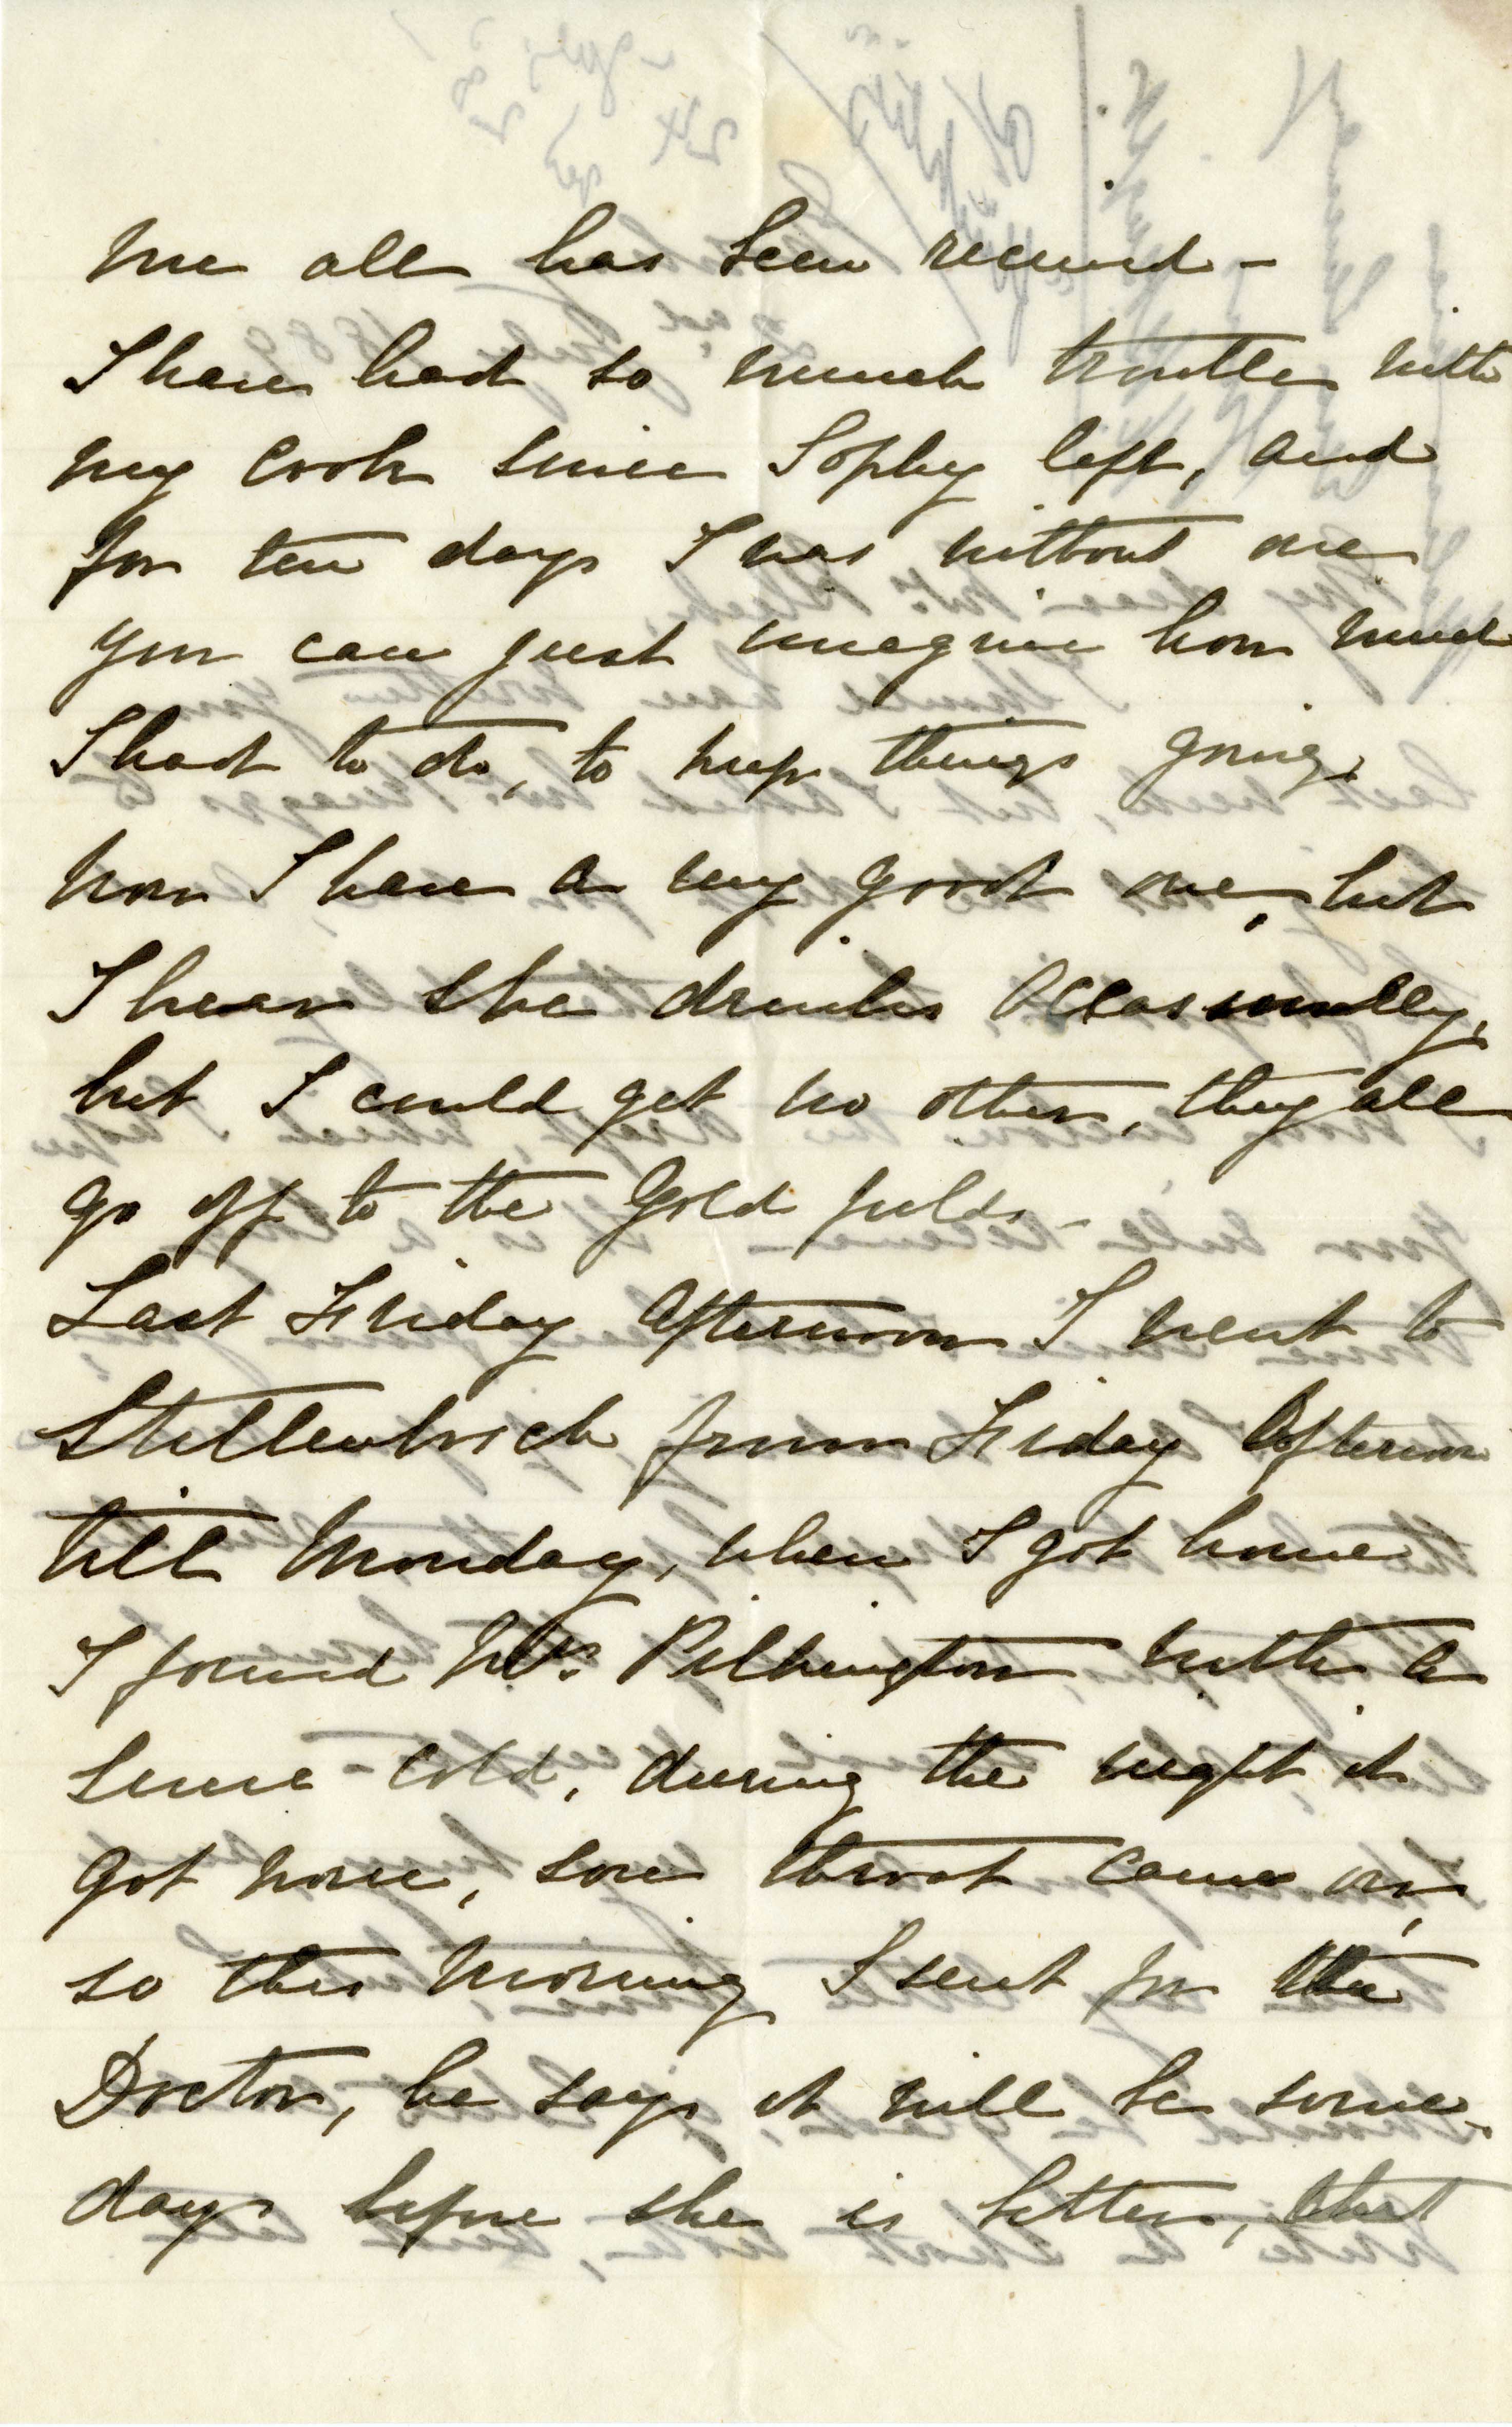 me all has been received -
I have had so much trouble with
my cook since Sophy left, and
for ten days I was without one
you can just imagine how much
I had to do, to keep things going,
now I have a very good one, but
I hear she drinks occassionally,
but I could get no other, they all
go off to the Gold fields -
Last Friday afternoon I went to
Stellenbosch from Friday afternoon
till Monday, when I got home
I found Mrs. Pilkington with a
severe cold, during the night it
got worse, sore throat came on,
so this morning I sent for the
Doctor, he says it will be some
days before she is better, that